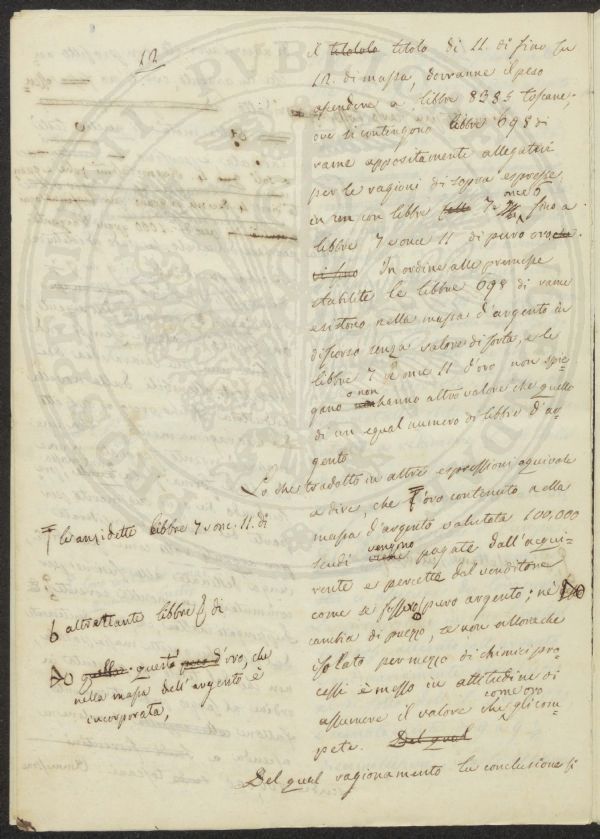 12
il titololo titolo di 11. di fino su
12. di massa, dovranne il peso
ascendere a libbre 8335 toscane;
ove si contengono libbre 698 di
rame appositamente allegatevi
per le ragioni di sopra espresse
in un con libbre 7 once 6 fino a
libbre 7 e once 11 di puro oro,
di fino In ordine alle premesse
stabilite le libbre 698 di rame
esistono nella massa d'argento in
discorso senza valore di sorta, e le
libbre 7 e once 11 d'oro non spie-
gano o non hanno altro valore che quello
di un egual numero di libbre d'ar-
gento
Lo che tradotto in altre espressioni equivale
a dire, che l'oro contenuto nella
massa d'argento valutata 100,000
scudi vengono pagate dall'acqui-
rente e percette dal venditore
come se fossero puro argento; nè
cambia di prezzo, se non allora che
isolato per mezzo di chimici pro-
cessi è messo in attitudine di
assumere il valore che come oro gli com-
pete. Del qual
Del qual ragionamento la conclusione si
le anzidette libbre 7 e onc. 11. di
altrettante libbre di
questo poco d'oro, che
nella massa dell'argento è
incorporata,